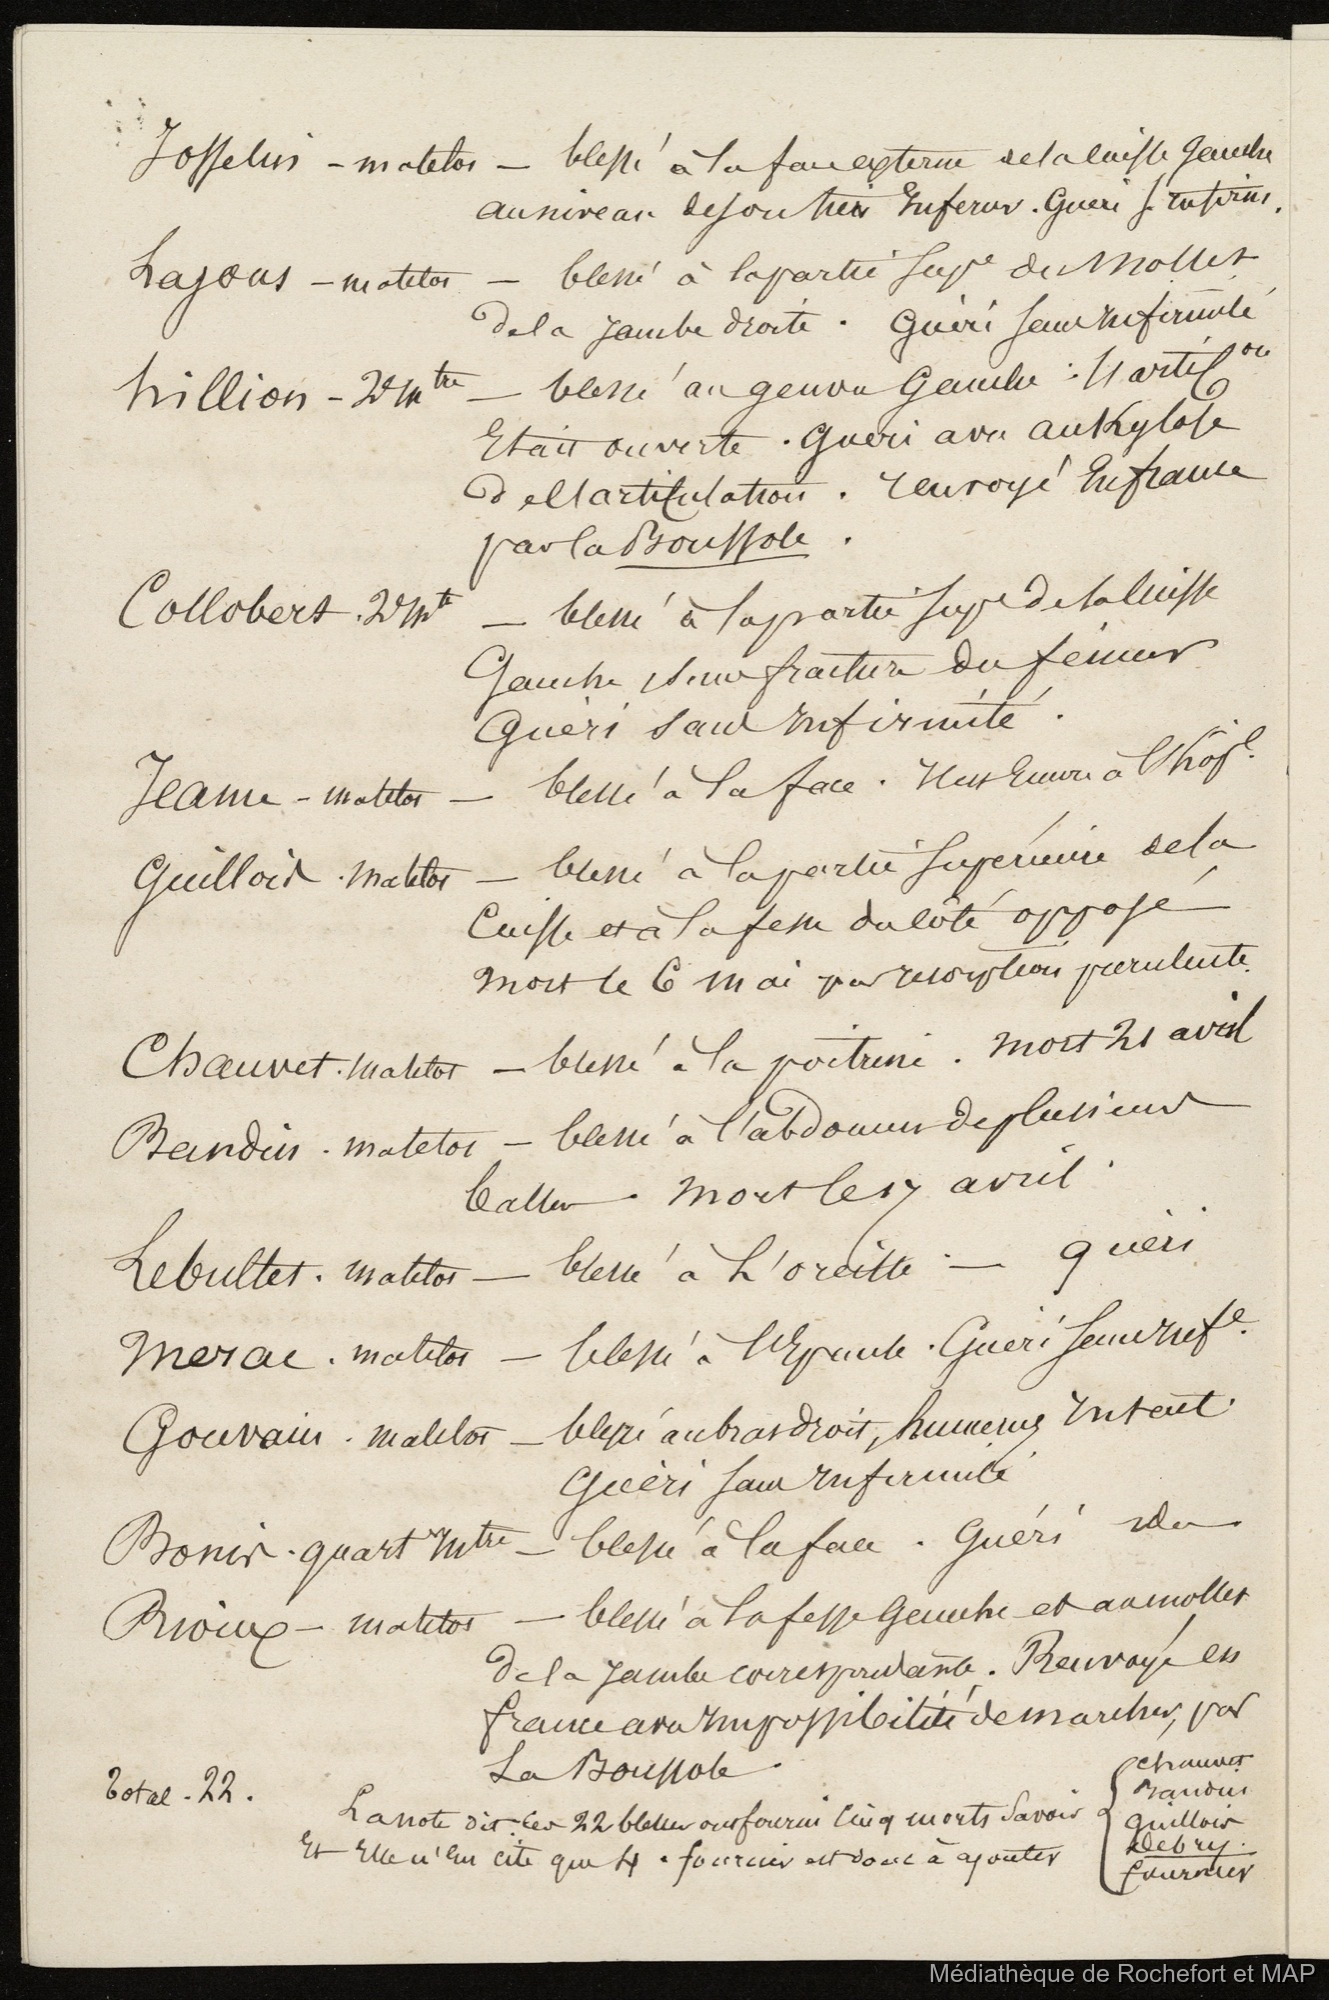 Josselin - matelot - blessé à la face externe de la cuisse gauche
au niveau de son tiers Inferieur. Guéri s. infirm.
Lajous - matelot - blessé à la partie supe du Mollet
de la jambe droite. Guéri sans infirmité
hillion - 2d mtre - blessé au genou gauche. l'articon
Etait ouverte. Guéri avec ankylose
de l'articulation. renvoyé En france
par la Boussole.
Collobert. 2d mte - blessé à la partie supe de la Cuisse
Gauche sans fracture du fémur
Guéri sans infirmité.
Jeanne - matelot - blessé à la face. Il est Encore à l'hôpl.
Guillois. matelot - blessé à la partie supérieure de la
Cuisse et à la fesse du côté opposé
Mort le 6 mai par resorption purulente.
Chauvet. matelot - blessé à la poitrine. mort 21 avril
Baudin. matelot - blessé à l'abdomen de plusieurs
balles. Mort le 17 avril.
Lebultet. matelot - blessé à L'oreille - guéri
Merac. matelot - blessé à l'Epaule. Guéri sans infe.
Gouvain. matelot - blessé au bras droit, humerus Intact.
Guéri sans infirmité
Bonis. quart mtre - blessé à la face. Guéri idem
Rioux - matelot - blessé à la fesse gauche et au mollet
de la jambe correspondante. Renvoyé en
france avec impossibilité de marcher, par
La Boussole.
Total. 22.
La note dit: les 22 blessés ont fourni Cinq morts Savoir
Et Elle n'en cite que 4. fournier est donc à ajouter
Chauvet
Baudin
Guillois
Debry.
fournier
Médiathèque de Rochefort et MAP